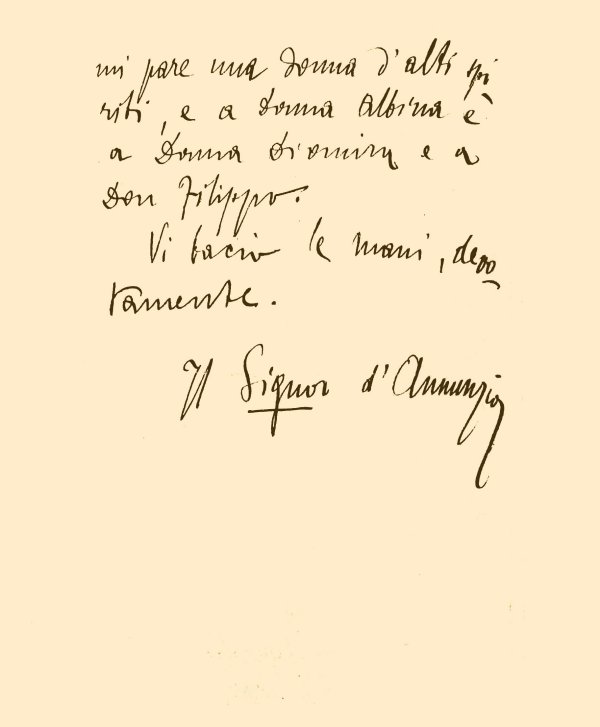 mi pare una donna d'alti spi
riti, e a Donna Albina e
a Donna Diomira e a
Don Filippo.
Vi bacio le mani, devo
tamente.
Il Signor d'Annunzio